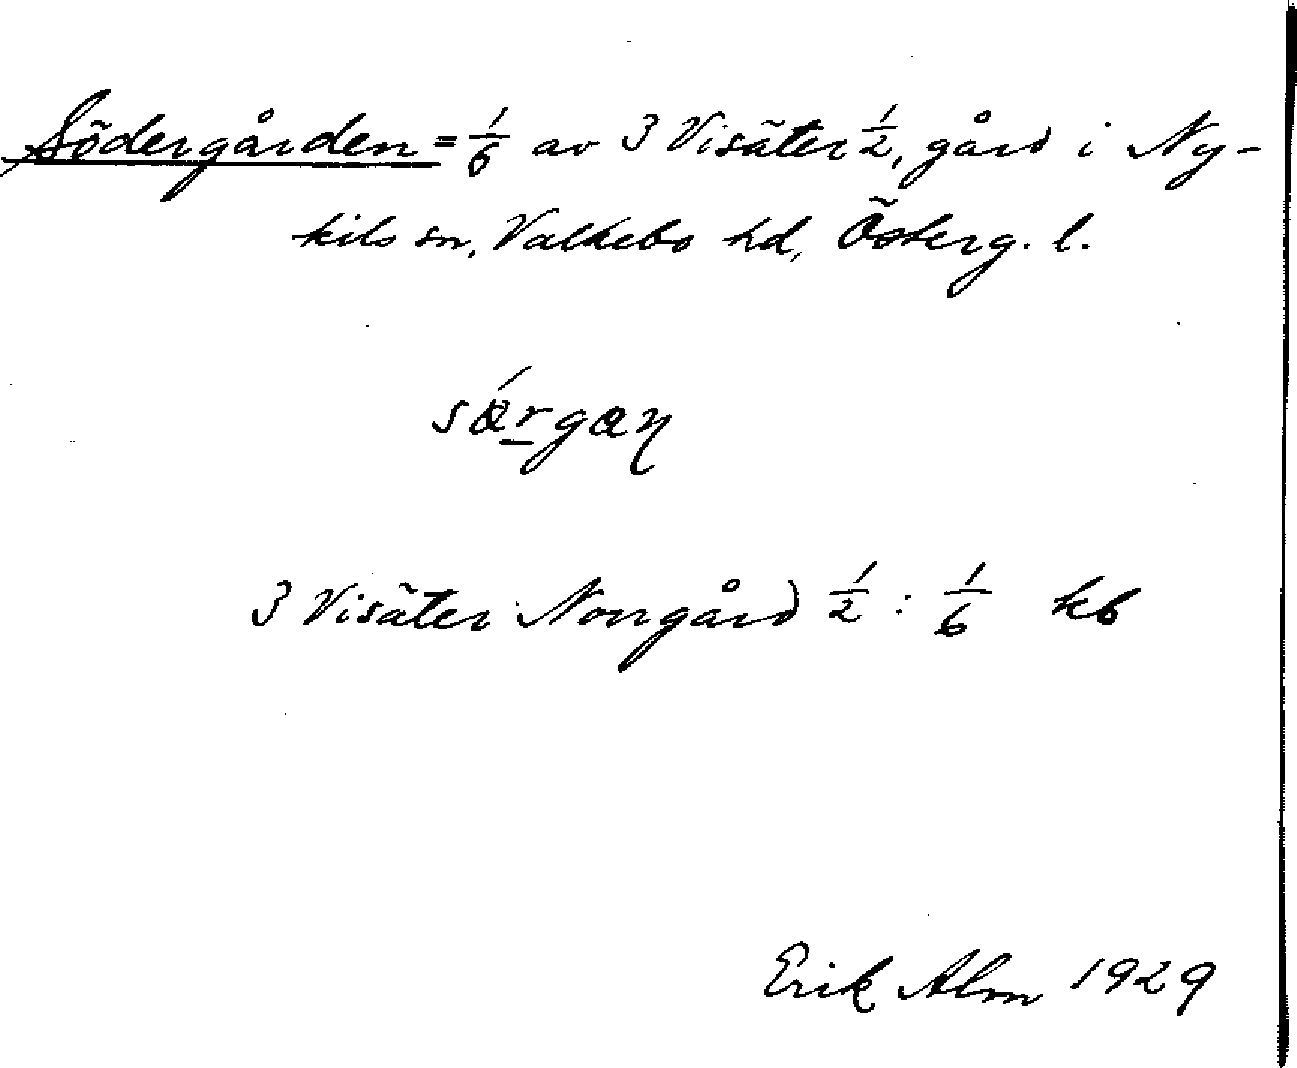 Södergården = 1/6 av 3 Visäter 1/2, gård i Ny-
kils sn, Valkebo hd, Österg. l.
sǽrgaɳ
3 Visäter Norrgård 1/2 : 1/6 kb
Erik Alm 1929